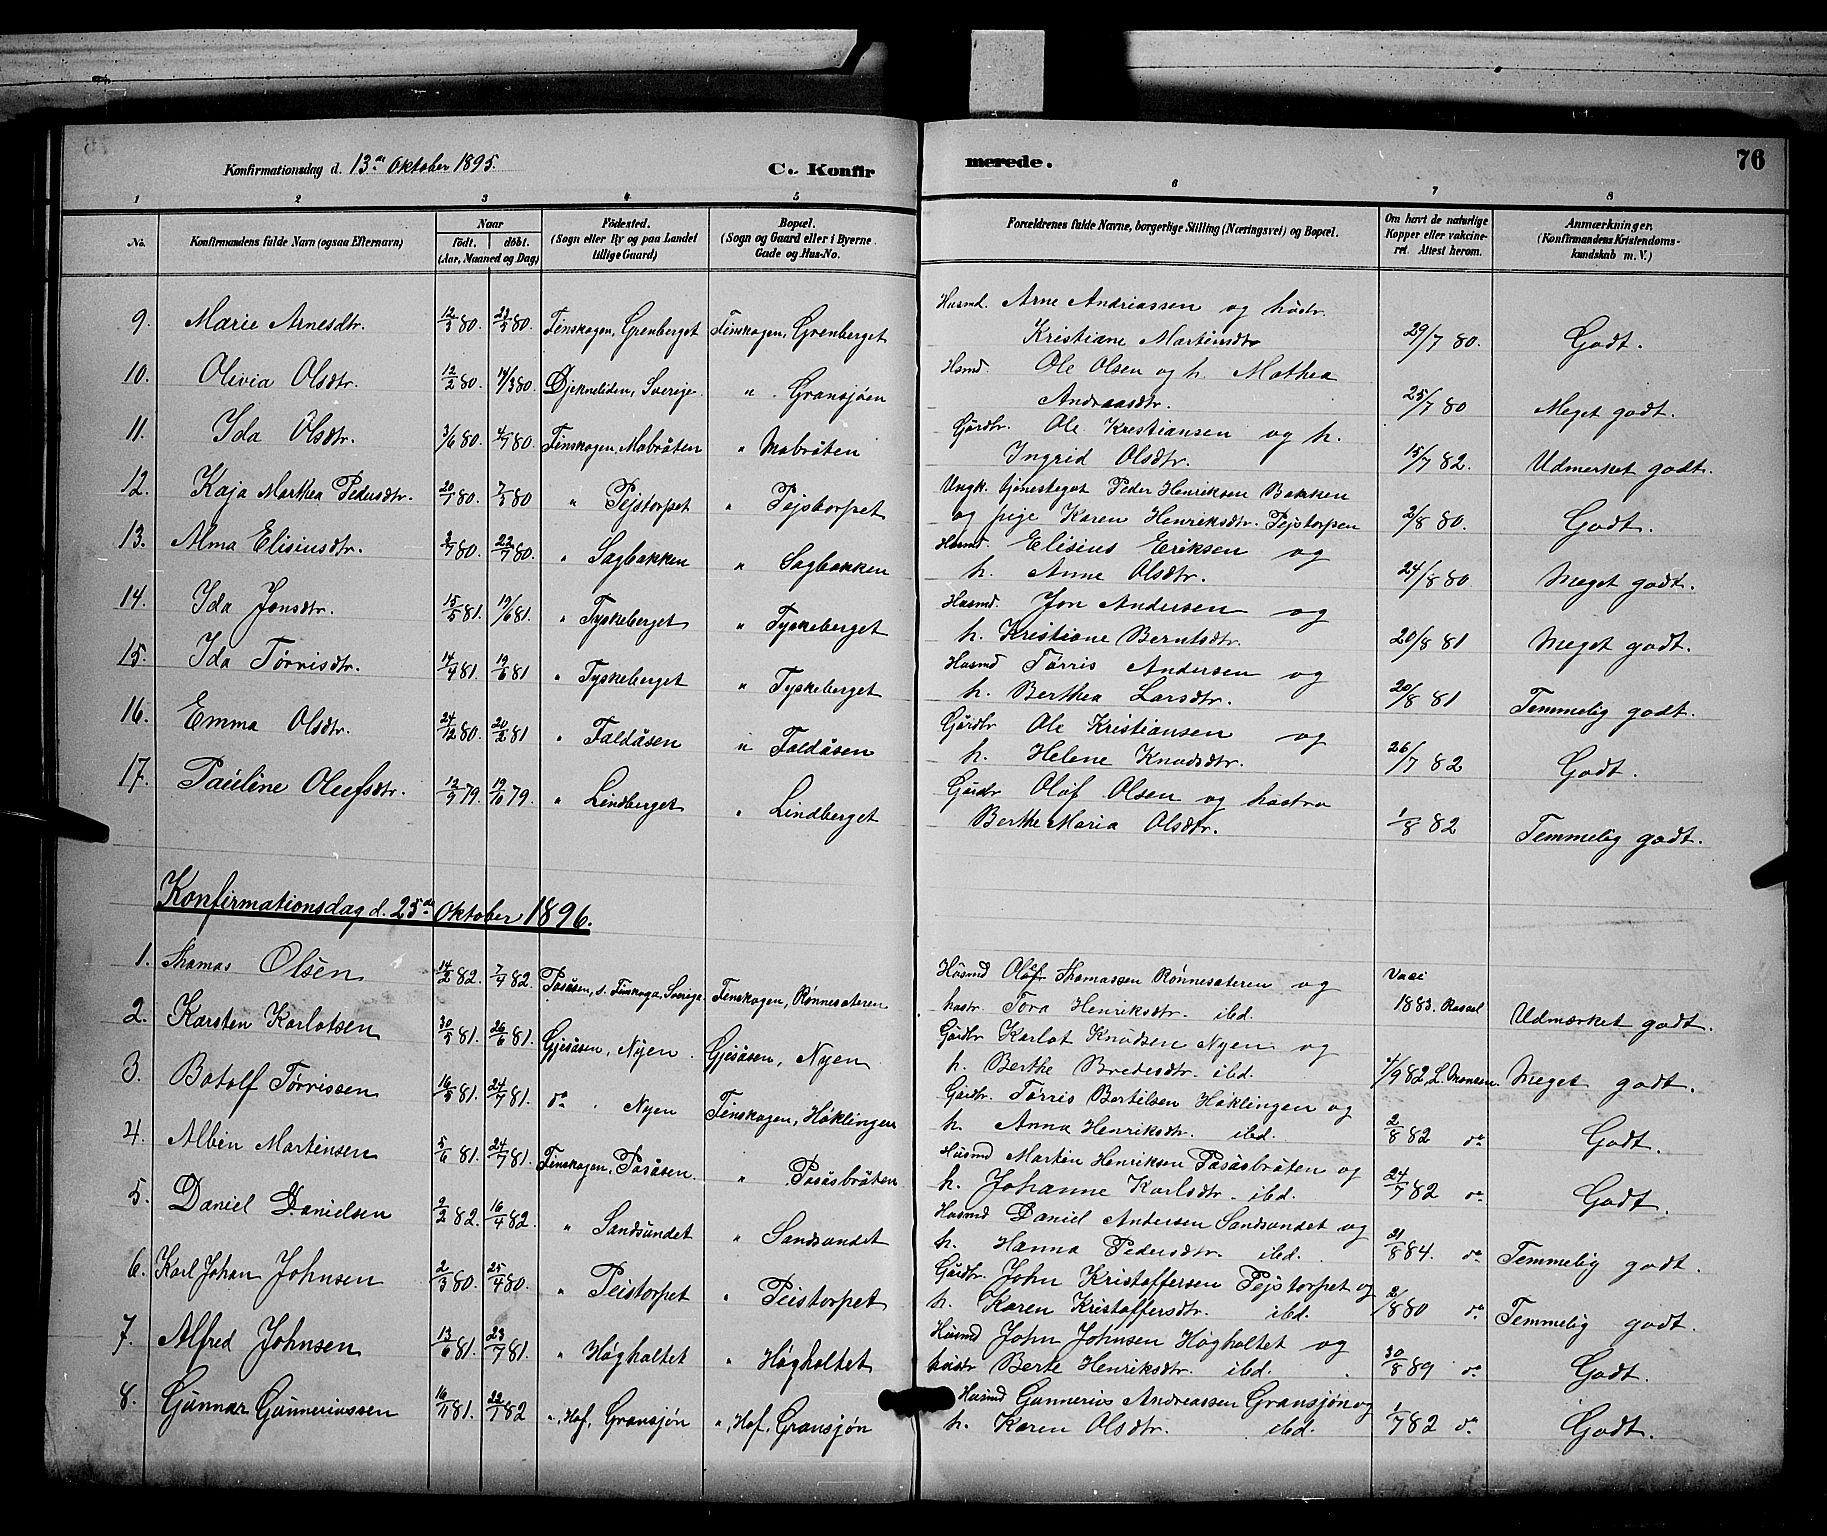 Konfirmationsdag d. 13de Oktober 1895. C. Konfirmerede. 76
1 2 3 4 5 6 7 8
No. Konfirmandens fulde Navn (ogsaa Efternavn) Naar født. døbt. (Aar, Maaned og Dag) Fødested. (Sogn eller By og paa Landet tillige Gaard) Bopæl. (Sogn og Gaard eller i Byerne Gade og Hus-No. Forældrenes fulde Navne, borgerlige Stilling (Næringsvei) og Bopæl. Om havt de naturlige Kopper eller vakcineret. Attest herom. Anmærkninger. (Konfirmandens Kristendomskundskab m. V.)
9. Marie Arnesdtr. 12/3 80. 23/5 80. Finskogen, Grenberget Finskogen, Grenberget Husmd. Arne Andriassen og hustr. Kristiane Martinsdtr 29/7 80. Godt.
10. Olivia Olsdtr. 12/2 80. 14/3 80. Djekneliden, Sverige. " Gransjøen Husmd. Ole Olsen og h. Mathea Andreasdtr. 25/7 80 Meget godt.
11. Ida Olsdtr. 3/6 80. 4/7 80. Finskogen, Mobråten " Mobråten Gårdbr. Ole Kristiansen og h. Ingrid Olsdtr. 15/7 82. Udmerket godt.
12. Kaja Marthea Pedersdtr. 20/1 80. 7/3 80 " Pejstorpet " Pejstorpet Ungk. tjenestegut Peder Henriksen Bakken og pige Karen Henriksdtr. Pejstorpen 2/8 80. Godt.
13. Alma Elisiusdtr. 2/7 80. 22/7 80. " Sagbakken " Sagbakken Husmd. Elisius Eriksen og h. Anne Olsdtr. 24/8 80 Meget godt.
14. Ida Jonsdtr. 15/5 81. 19/6 81. " Tyskeberget " Tyskeberget Husmd. Jon Andersen og h. Kristiane Berntsdtr. 20/8 81 Meget godt.
15. Ida Tørrisdtr. 14/4 81. 19/6 81 " Tyskeberget " Tyskeberget Husmd Tørris Andersen og h. Berthea Larsdtr. 20/8 81 Temmelig godt.
16. Emma Olsdtr. 24/12 80. 20/2 81 " Faldåsen " Faldåsen Gårdbr Ole Kristiansen og h. Helene Knudsdtr. 26/7 82 Godt.
17. Pauline Olufsdtr. 12/9 79. 19/10 79. " Lindberget " Lindberget Gårdbr Olof Olsen og hustru Berthe Maria Olsdtr. 1/8 82 Temmelig godt.
Konfirmationsdag d. 25de Oktober 1896.
1. Thomas Olsen 14/2 82. 7/4 82. Pasåsen, s. Finskoga, Sverige Finskogen, Rønnesæteren Husmd Olof Thomassen Rønnesæteren og hustr. Tora Henriksdtr. ibd. Vacc 1883. Udmærket godt.
2. Karsten Karlotsen 30/5 81. 26/6 81. Gjesåsen, Nyen. Gjesåsen, Nyen Gårdbr Karlot Knudsen Nyen og h. Berthe Bredesdtr. ibd. 1/9 82, L. Monsen. Meget godt.
3. Botolf Tørrissen 16/5 81. 24/7 81. do. " Nyen Finskogen, Høklingen Gårdbr. Tørris Bertilsen Høklingen og h. Anna Henriksdtr. ibd. 2/8 82 do Godt.
4. Albin Martinsen 5/6 81. 24/7 81. Finskogen, Pasåsen. " Pasåsbråten Husmd Martin Henriksen Pasåsbråten og h. Johanne Karlsdtr. ibd. 24/7 82 do Godt.
5. Daniel Danielsen 2/2 82. 16/4 82. " Sandsundet " Sandsundet Husmd Daniel Andersen Sandsundet og h. Hanna Pedersdtr. ibd. 21/8 84. do Temmelig godt.
6. Karl Johan Johnsen 2/3 80. 25/4 80. " Peistorpet " Peistorpet Gårdbr. John Kristoffersen Pejstorpet og h. Karen Kristoffersdtr. ibd. 2/8 80 do Temmelig godt.
7. Alfred Johnsen 13/6 81. 23/7 81. " Høgholtet " Høgholtet Husmd John Johnsen Høgholtet og hustr Berte Henriksdtr. ibd. 30/8 89 do Godt.
8. Gunnar Gunneriussen 16/11 81. 22/1 82 ", Hof, Gransjøn ", Hof, Gransjøn Husmd Gunnerius Andreassen Gransjøn og h. Karen Olsdtr. ibd. 1/7 82 do Godt.